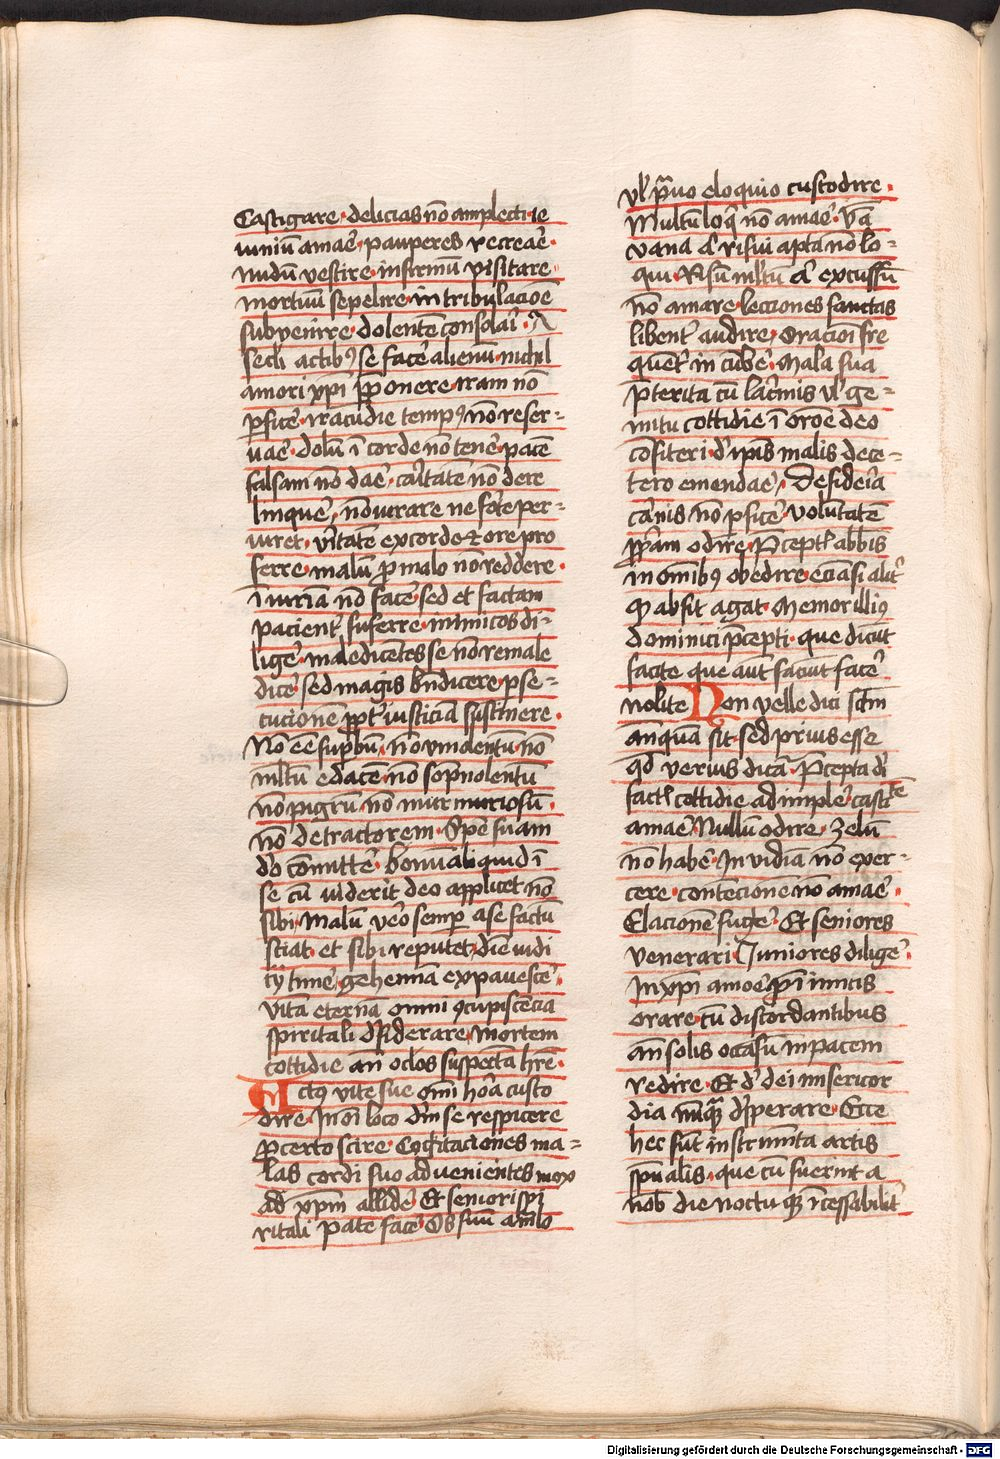 Castigare · delicias nō amplecti · ie
iuniū amar̄e · pauperes recrearē ·
nudū vestire · infirmū visitare ·
mortuū sepelire · in tribulacioē
subvenire · dolentē consolarī · A
sechi actibꝫ se facē alienū · nichil
amori xp̄i p̄ponere · iram nō
ꝑficē · iracūdie tempꝰ nō reser-
uaē · dolū ī corde nō tenē · pacē
falsam nō daē · caritatē nō dere
linquē · nō iurare ne forte per-
iuret · v̄itatē ex corde et ore pro
ferre · malū ꝓ malo nō reddere ·
īniuriā nō facē · sed et factam
pacient̄ sufferre · inimicos di-
ligē · maledicētes se nō remale
dicē sed magis bn̄dicere · ꝑse-
cucionē ꝓpt̄ iusticiā sustinere ·
Nō eē supbū · nō vinolentū · nō
ml̄tū edacē · nō sopnolentū
nō pigrū · nō murmuriosū ·
nō detractorem · Spē suam
dō cōmittē · bonū aliquid ī
se cū viderit deo applicet nō
sibi · Malū v̄o semp̄ a se factū
sciat · et sibi reputet · diē iudi
cij timē · gehennā expavescē ·
vitā eternā omni ꝯcupiscēcia
spiritali dēsiderare · Mortem
cottidie an̄ oclos suspectā hr̄e ·
Actꝰ vite sue om̄i hōa custo
dire · In oī loco dm̄ se respicere
ꝓ certo scire · Cogitaciones ma-
las cordi suo advenientes mox
ad xp̄m allidē · Et seniori spi
ritali patē facē · Os suū a malo
vl̄ p̄uo eloquio custodire ·
Multū loqī nō amaē · v̄ā
vana aut risui apta nō lo-
qui · Risū ml̄tū aut excussū
nō amare · lecciones sanctas
libent̄ audire · Oracioī fre
quēt̄ incūbē · Mala sua
p̄terita cū lac̄mis vl̄ ge-
mitu cottidie ī oroē deo
cōfiteri · d̄ ip̄is malis dece-
tero emendaē · Desideria
carnis nō ꝑficē · volūtatē
ꝓpriam odire · P̄ceptꝭ abbīs
in om̄ibꝰ obedire · eciāsi alit̄
qđ absit agat · Memor illiꝰ
dominici p̄cepti · que dicūt
facite que aut faciūt facē
nolite · Non velle dici sc̄m
anquā sit · sed prius esse
qđ verius dicā · P̄cepta dī
factꝭ cottidie adimplē · castitē
amaē · Nullū odire · Zelū
nō habē · Invidiā nō exer-
cere · contencionē nō amaē ·
Elacionē fugē · Et seniores
venerari · Juniores diligē ·
In xp̄i amoē p̄ inīicis
orare · cū discordantibus
an̄ solis occasū in pacem
redire · Et d̄ dei misericor
dia nūqꝫ dispperare · Ecce
hec sūt instrumēta artis
spūalis · que cū fuerint a
nob̄ die noctuqꝫ īcessabilit̄
Digitalisierung gefördert durch die Deutsche Forschungsgemeinschaft - DFG